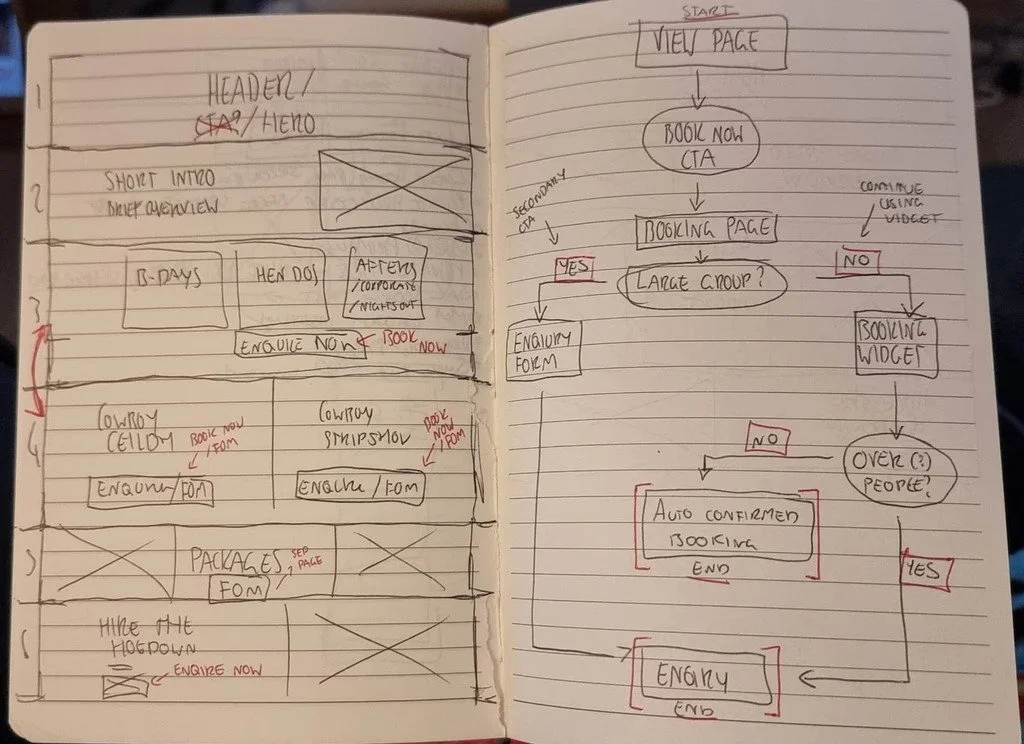 1
HEADER/
CTA?/HERO
2
SHORT INTRO
BRIEF OVERVIEW
3
B-DAYS
HEN DOS
AFTERS
/CORPORATE
/NIGHTS OUT
ENQUIRE NOW
BOOK
NOW
4
COWBOY
CEILIDH
BOOK NOW
/FOM
ENQUIRE/FOM
COWBOY
STRIPSHOW
BOOK
NOW
/FOM
ENQUIRE/FOM
5
PACKAGES
SEP
PAGE
FOM
6
HIRE THE
HOEDOWN
ENQIRE NOW
START
VIEW PAGE
BOOK NOW
CTA
SECONDARY
CTA
CONTINUE
USING
WIDGET
BOOKING PAGE
YES
LARGE GROUP?
NO
ENQIURY
FORM
BOOKING
WIDGET
NO
OVER (?)
PEOPLE?
AUTO CONFIRMED
BOOKING
END
YES
ENQIRY
END